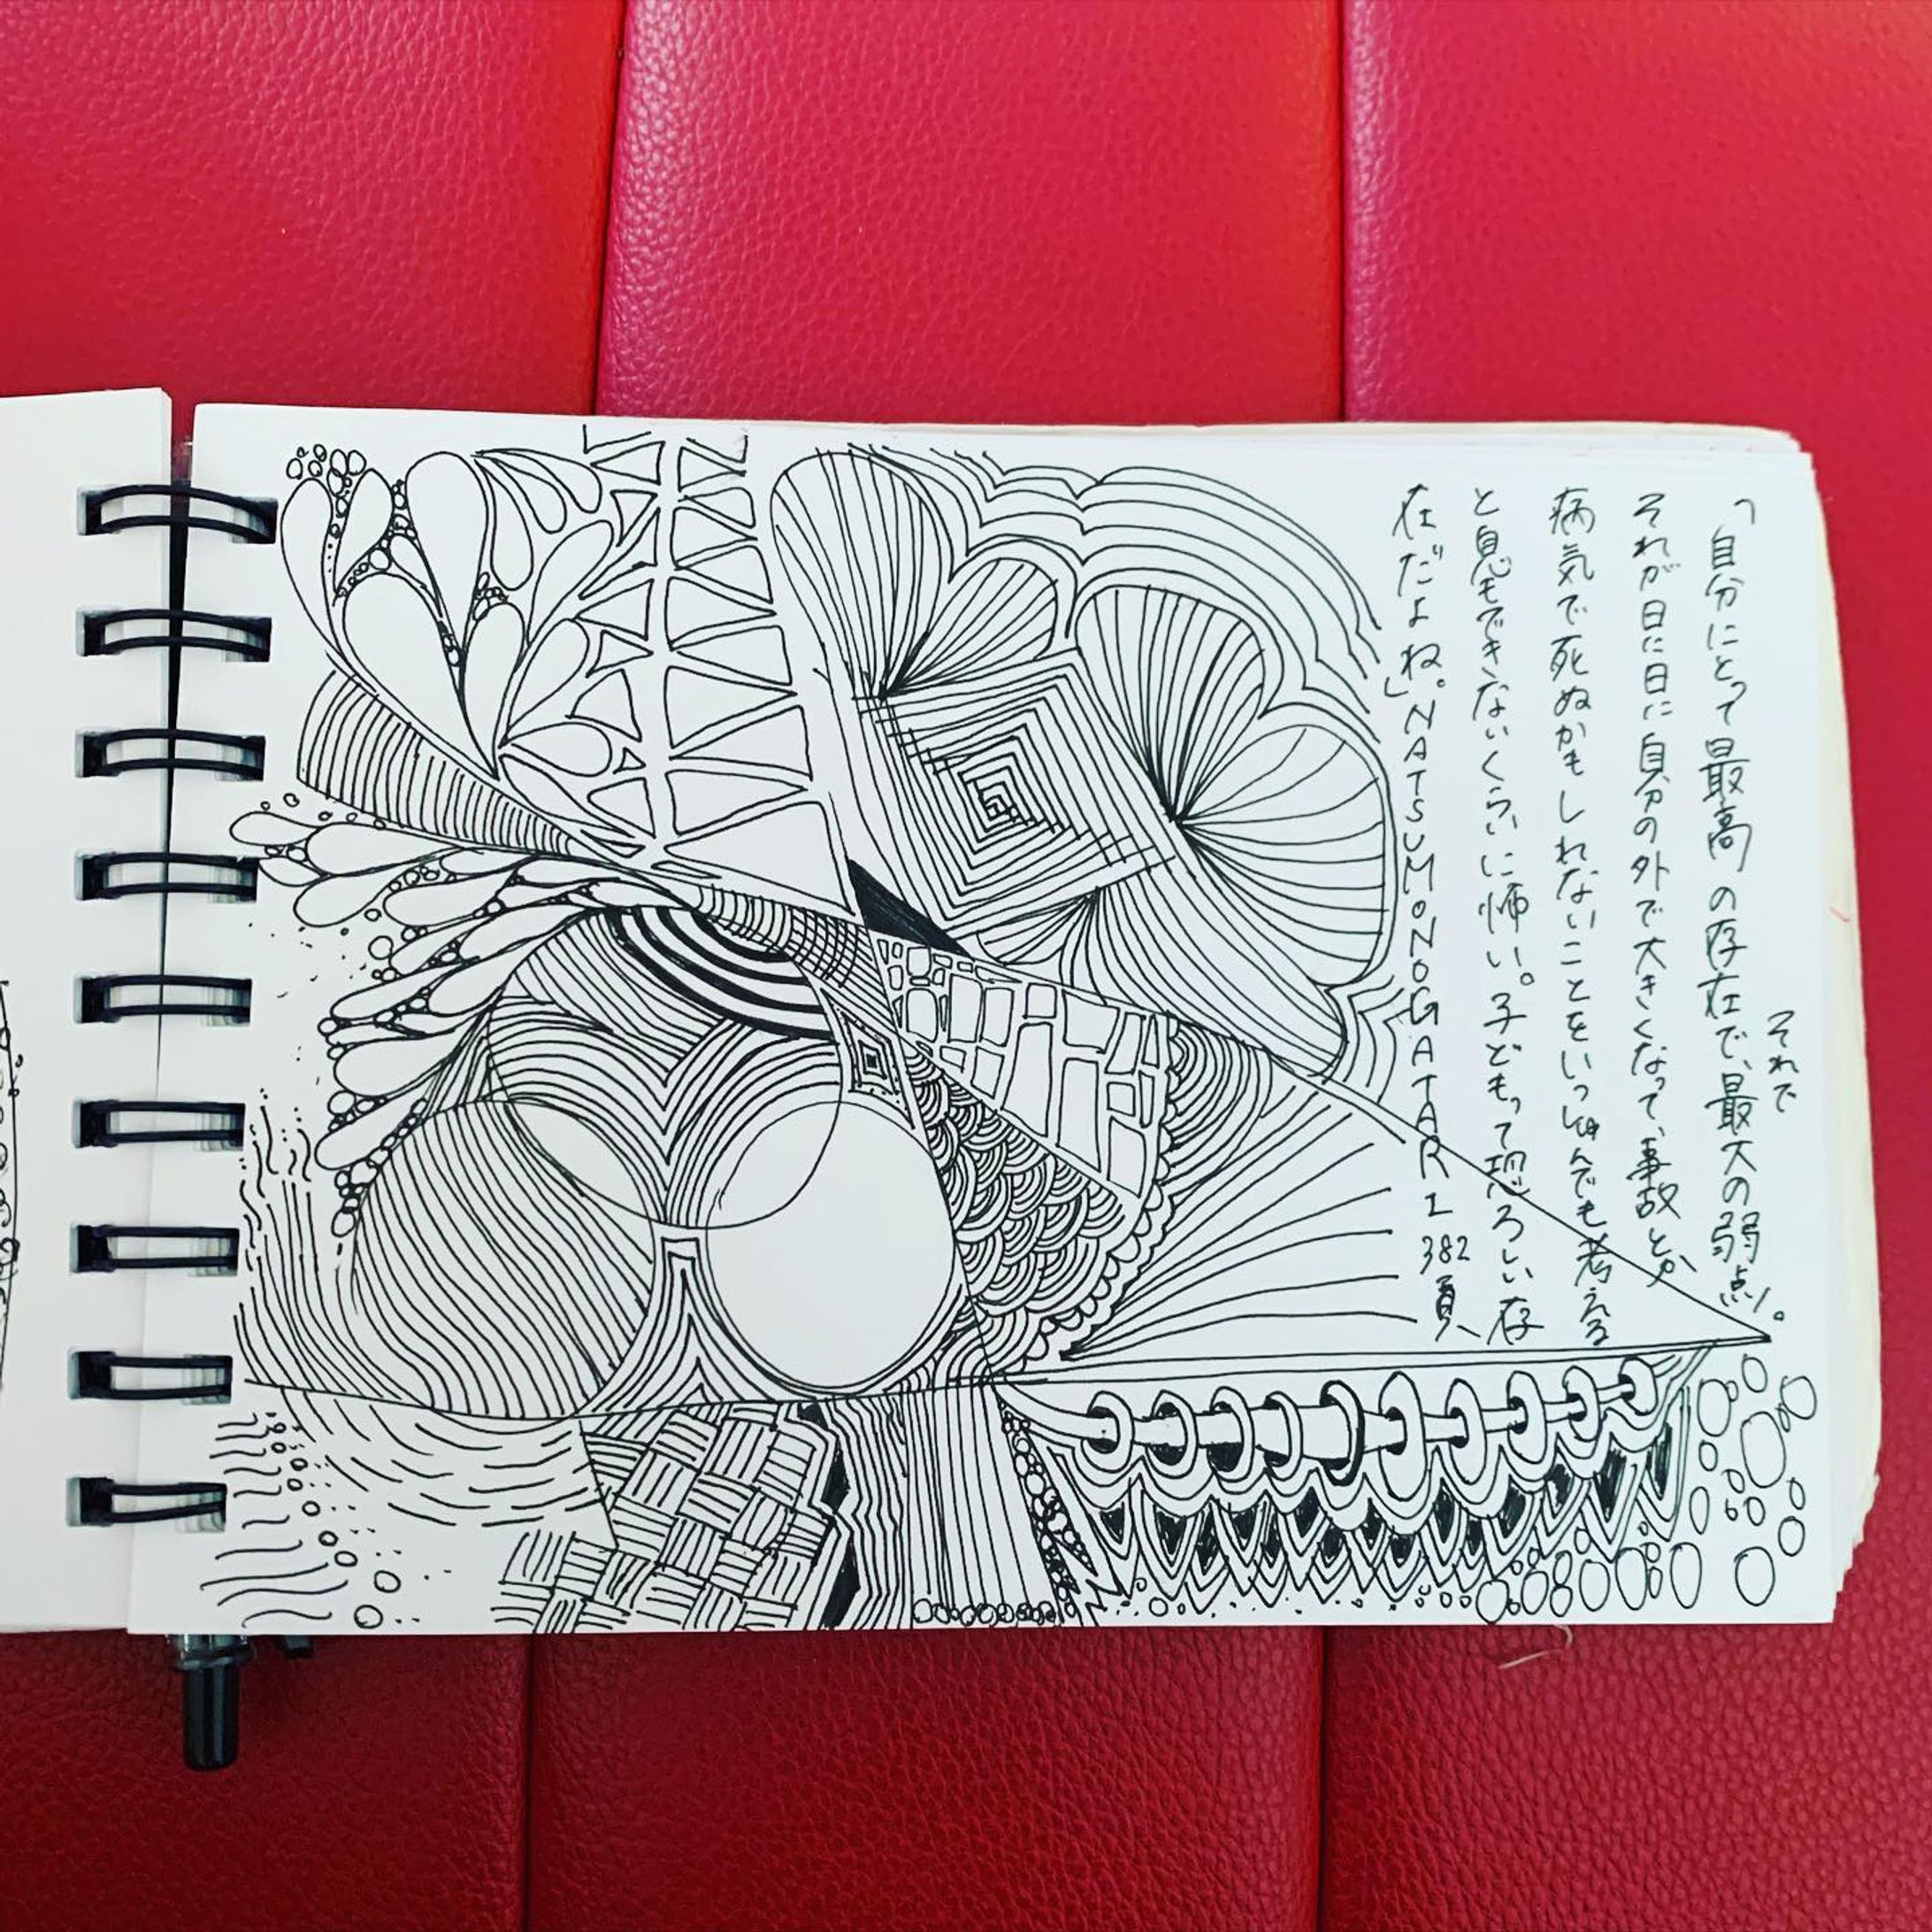 「自分にとって最高の存在で、それで最大の弱点。
それが日に日に自分の外で大きくなって、事故とか
病気で死ぬかもしれないことをいっしゅんでも考える
と息もできないくらいに怖い。子どもって恐ろしい存
在だよね。」NATSUMONOGATARI 382頁